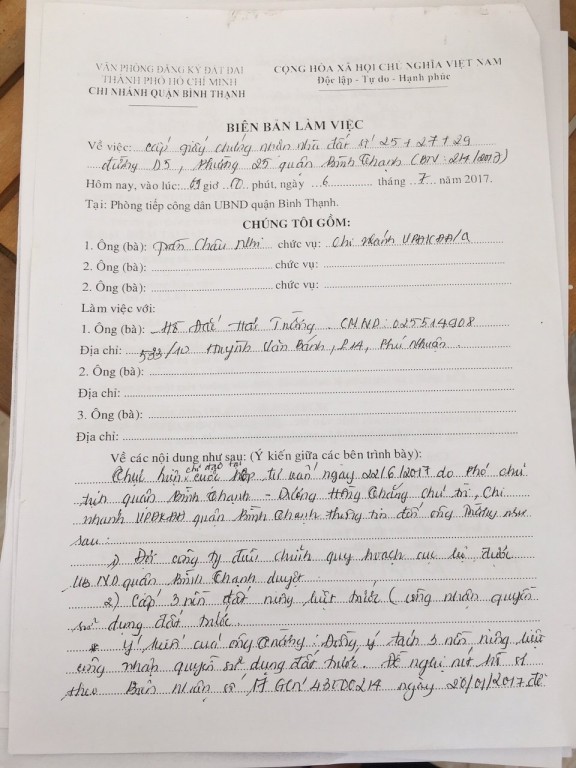 VĂN PHÒNG ĐĂNG KÝ ĐẤT ĐAI
THÀNH PHỐ HỒ CHÍ MINH
CHI NHÁNH QUẬN BÌNH THẠNH
CỘNG HÒA XÃ HỘI CHỦ NGHĨA VIỆT NAM
Độc lập - Tự do - Hạnh phúc
BIÊN BẢN LÀM VIỆC
Về việc: cấp giấy chứng nhận nhà đất số 25 + 27 + 29
đường D5, Phường 25 quận Bình Thạnh (BN: 214/2017)
Hôm nay, vào lúc: 09 giờ 10 phút, ngày 6 tháng 7 năm 2017.
Tại: Phòng tiếp công dân UBND quận Bình Thạnh.
CHÚNG TÔI GỒM:
1. Ông (bà): Trần Châu Nhi chức vụ: Chi nhánh VPĐKĐĐ/Q
2. Ông (bà): chức vụ:
2. Ông (bà): chức vụ:
Làm việc với:
1. Ông (bà): Hồ Đắc Hải Trường. CMND: 025514908
Địa chỉ: 533/10 Huỳnh Văn Bánh, P14, Phú Nhuận.
2. Ông (bà):
Địa chỉ:
3. Ông (bà):
Địa chỉ:
Về các nội dung như sau: (Ý kiến giữa các bên trình bày):
Thực hiện chỉ đạo tại cuộc họp tư vấn ngày 22/6/2017 do Phó chủ
tịch quận Bình Thạnh - Dương Hồng Thắng chủ trì, Chi
nhánh VPĐKĐĐ quận Bình Thạnh thông tin đến ông Trường như
sau:
1) Đợi công ty điều chỉnh quy hoạch cục bộ được
UBND quận Bình Thạnh duyệt.
2) Cấp 3 nền đất riêng biệt trước (công nhận quyền
sử dụng đất trước.
* Ý kiến của ông Trường: Đồng ý tách 3 nền riêng biệt
công nhận quyền sử dụng đất trước. Đề nghị rút hồ sơ
theo Biên nhận số GCN 43500214 ngày 20/01/2017 để